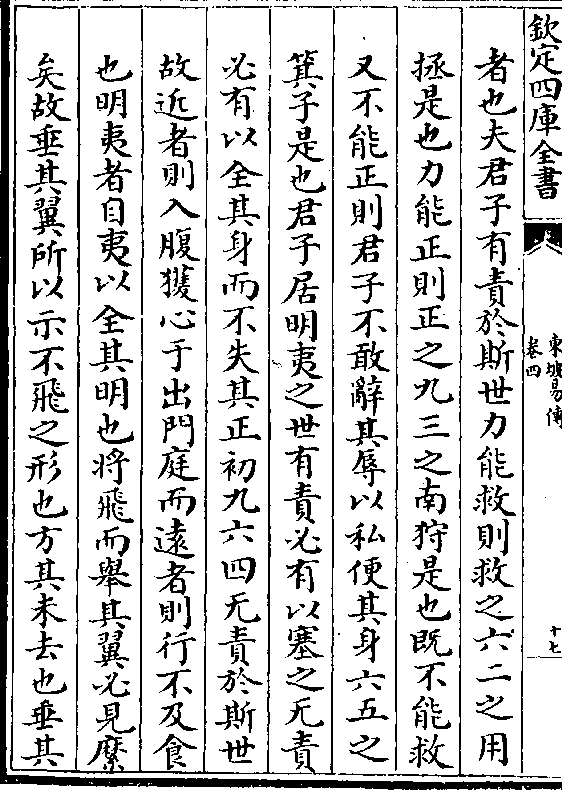 欽定四庫全書
東坡易傳
卷四
十七
者也夫君子有責於斯世力能救則救之六二之用
拯是也力能正則正之九三之南狩是也既不能救
又不能正則君子不敢辭其辱以私便其身六五之
箕子是也君子居明夷之世有責必有以塞之无責
必有以全其身而不失其正初九六四无責於斯世
故近者則入腹獲心于出門庭而遠者則行不及食
也明夷者自夷以全其明也將飛而舉其翼必見縻
矣故垂其翼所以示不飛之形也方其未去也垂其